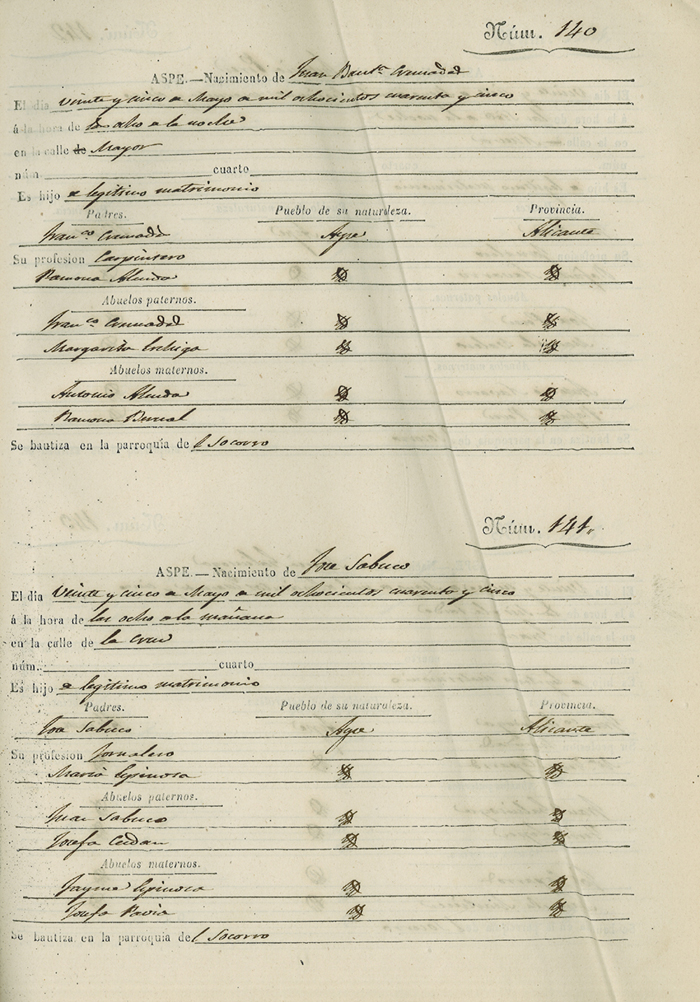 Núm. 140
ASPE.—Nacimiento de Juan Baut.ª Cremades
El dia veinte y cinco de Mayo de mil ochocientos cuarenta y cinco
á la hora de las ocho de la noche
en la calle de Mayor
núm. cuarto
Es hijo de legitimo matrimonio
Padres. Pueblo de su naturaleza. Provincia.
Fran.co Cremades Aspe Alicante
Su profesion Carpintero
Ramona Almda
Abuelos paternos.
Fran.co Cremades
Margarita
Abuelos maternos.
Antonio Almda
Ramona Bernal
Se bautiza en la parroquía del Socorro
Núm. 141.
ASPE.—Nacimiento de Jose Sabuco
El dia veinte y cinco de Mayo de mil ochocientos cuarenta y cinco
á la hora de las ocho de la mañana
en la calle de la Cruz
núm. cuarto
Es hijo de legitimo matrimonio
Padres. Pueblo de su naturaleza. Provincia.
Jose Sabuco Aspe Alicante
Su profesion Jornalero
Maria Espinosa
Abuelos paternos.
Juan Sabuco
Josefa Cerdan
Abuelos maternos.
Jayme Espinosa
Josefa Pavia
Se bautiza en la parroquía del Socorro